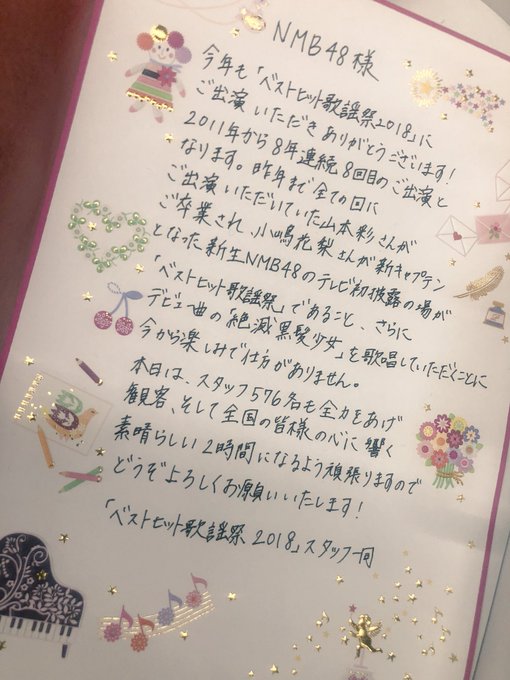 NMB48様
今年も「ベストヒット歌謡祭2018」に
ご出演いただきありがとうございます!
2011年から8年連続8回目のご出演と
なります。昨年まで全ての回に
ご出演いただいていた山本彩さんが
ご卒業され、小嶋花梨さんが新キャプテン
となった新生NMB48のテレビ初披露の場が
「ベストヒット歌謡祭」であること、さらに
デビュー曲の「絶滅黒髪少女」を歌唱していただくことに
今から楽しみで仕方がありません。
本日は、スタッフ576名も全力をあげ
観客、そして全国の皆様の心に響く
素晴らしい2時間になるよう頑張りますので
どうぞよろしくお願いいたします!
「ベストヒット歌謡祭 2018」スタッフ一同